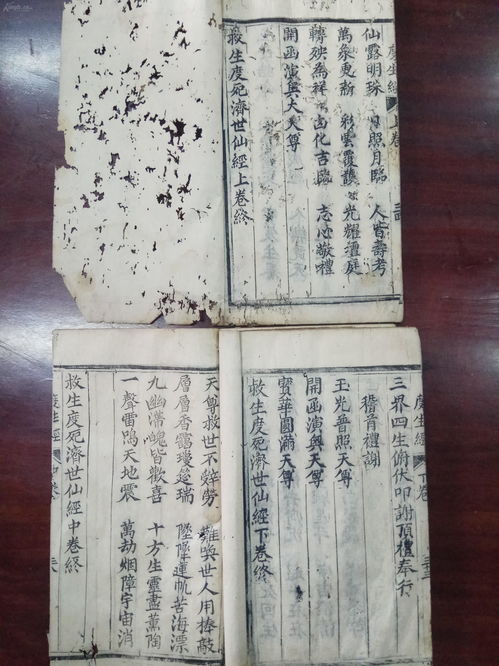 度生經 上卷
仙露明珠 日照月臨 人皆壽考
萬象更新 彩雲覆護 光耀壇庭
轉殃為祥 凶化吉臨 志心敬禮
開函演與大天尊
救生度死濟世仙經上卷終
度生經 下卷
三界四生俯伏叩謝頂禮奉行
稽首禮謝
玉光普照天尊
開函演與天尊
寶華圓滿天尊
救生度死濟世仙經下卷終
天尊救世不辭勞 難喚世人用棒敲
層層香靄瓊筵瑞 墜墜運帆苦海漂
九幽滯魄皆歡喜 十方生靈盡薰陶
一聲雷鳴天地震 萬劫烟障宇宙消
救生度死濟世仙經中卷終
度生經 中卷